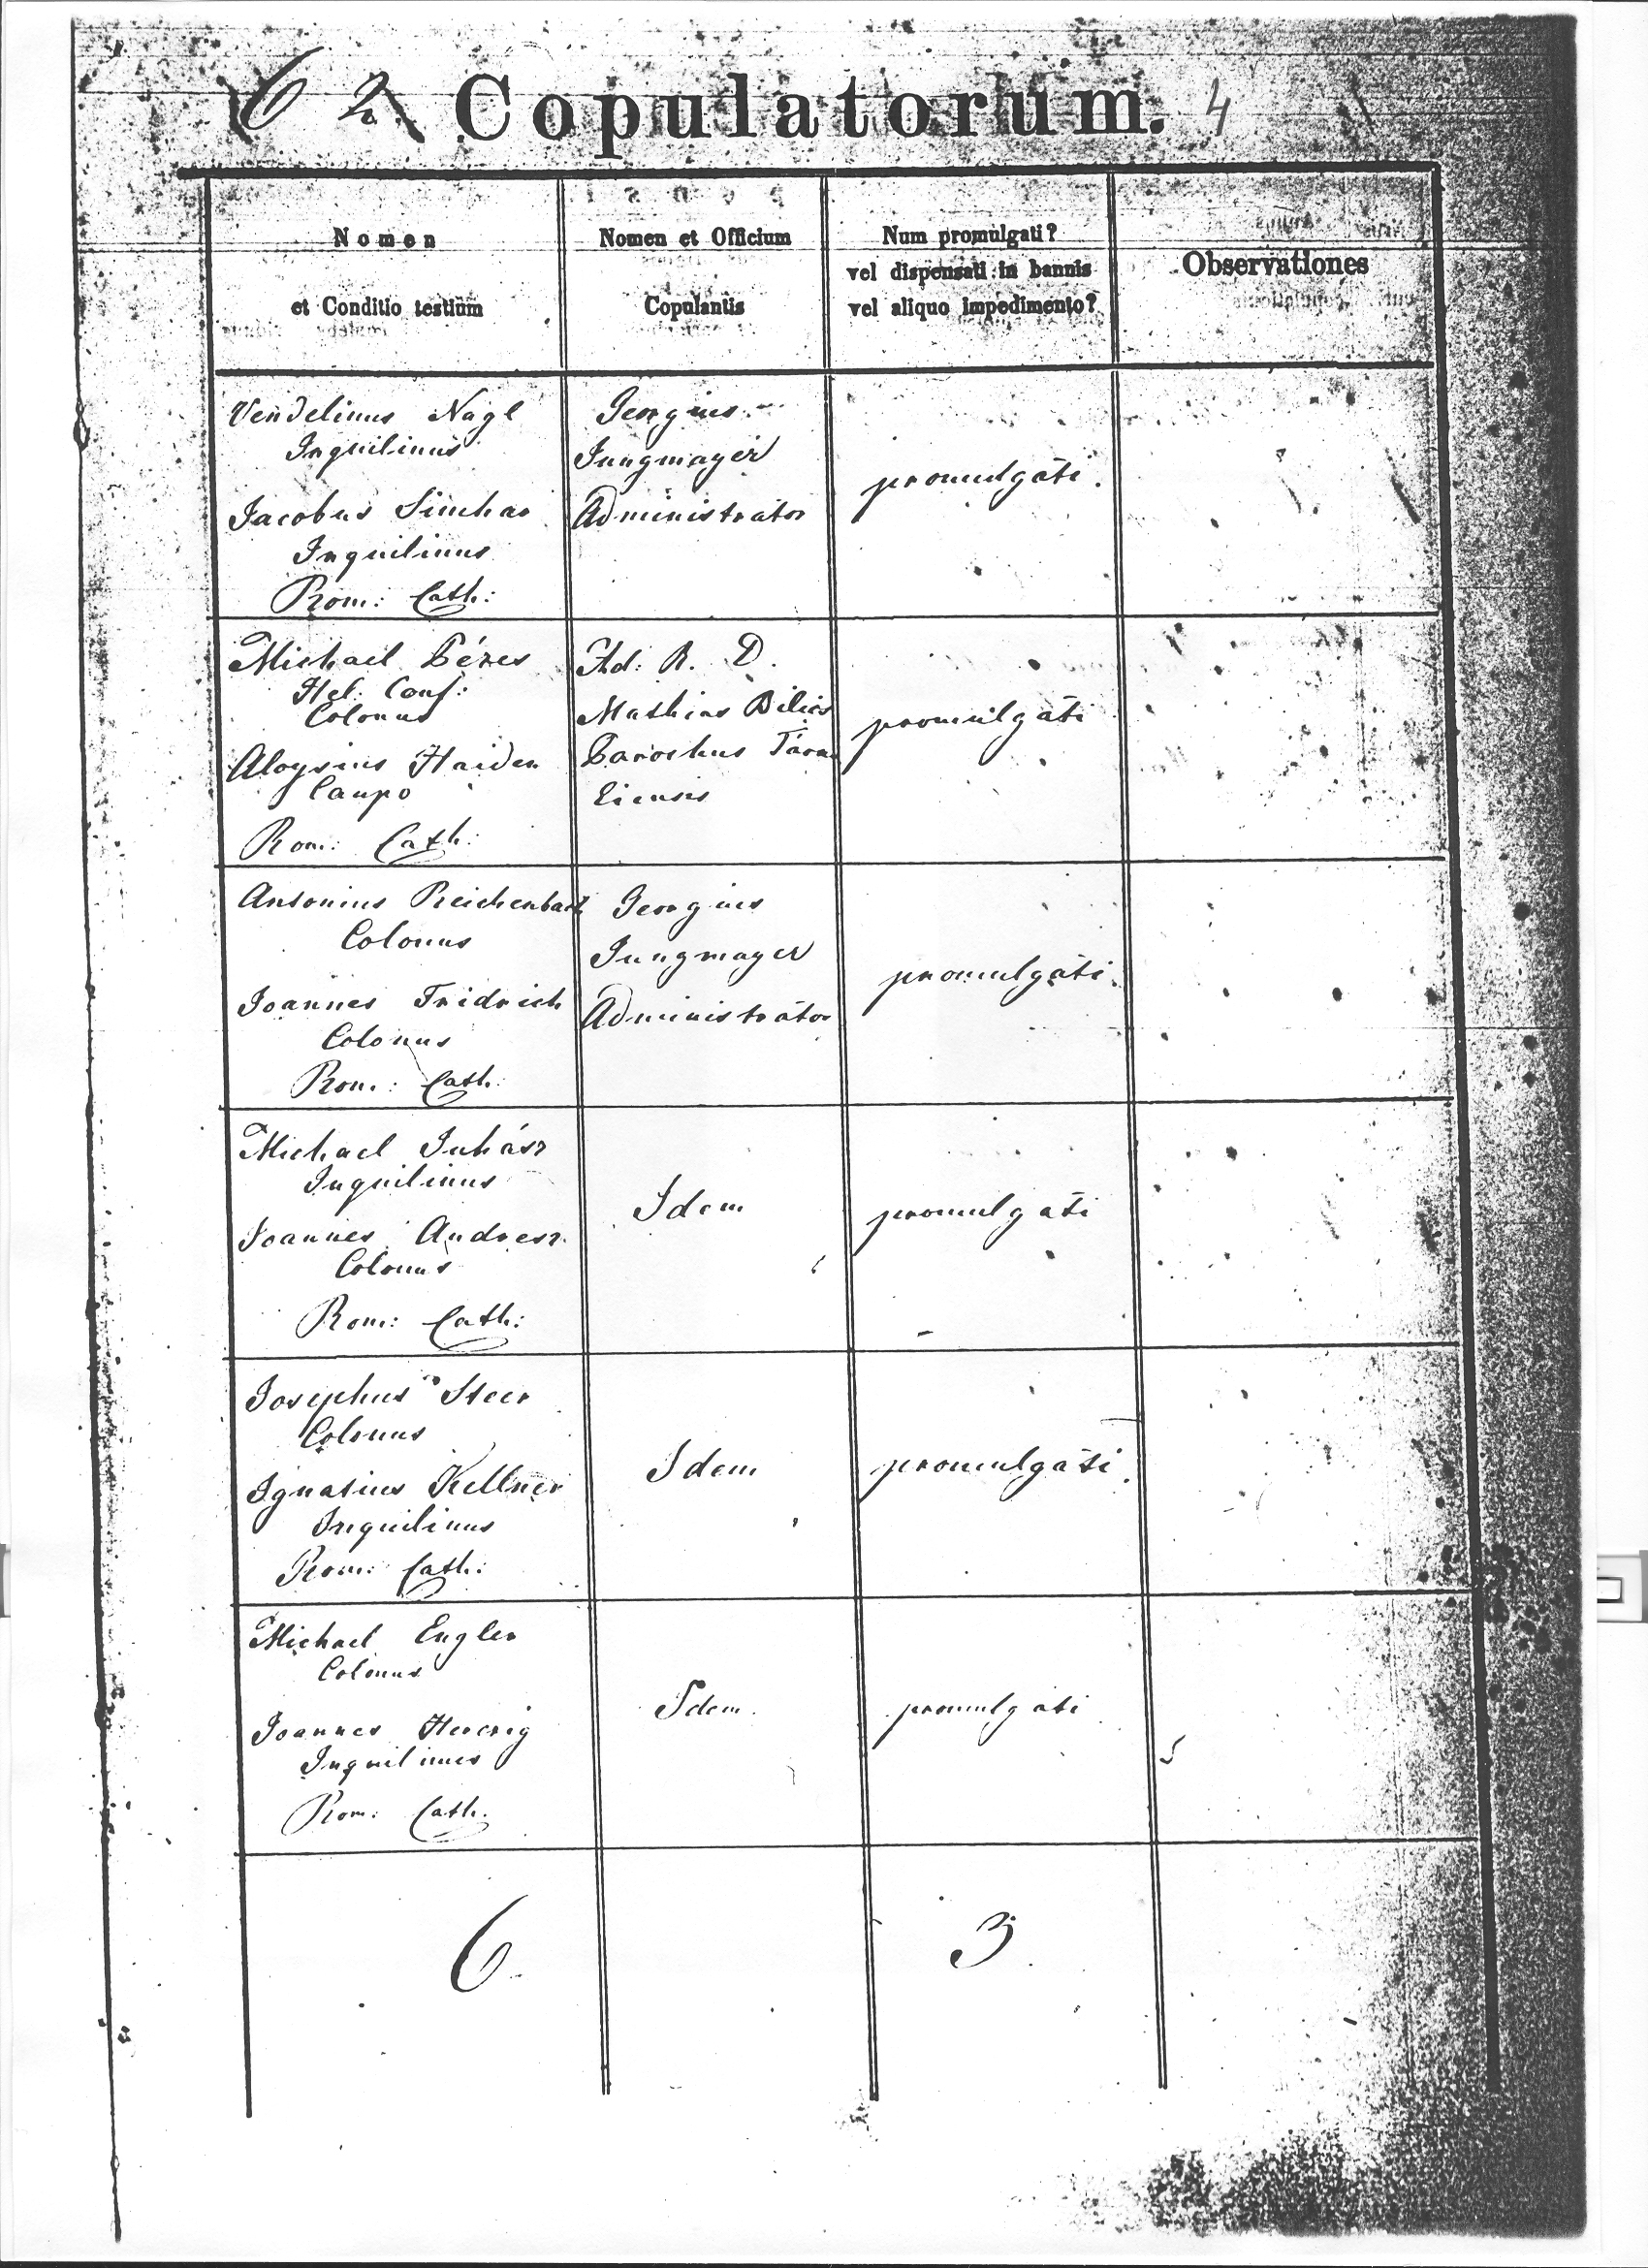 62. Copulatorum. 4
Nomen
et Conditio testium
Nomen et Officium
Copulantis
Num promulgati?
vel dispensati in bannis
vel aliquo impedimento?
Observationes
Vendelinus Nagl
Inquilinus
Jacobus
Inquilinus
Rom: Cath:
Georgius
Jungmayer
Administrator
promulgáti.
Michael
Hel: Conf:
Colonus
Aloysius Haider
Caupo
Rom: Cath:
Ad. R. D.
Mathias Bilics
Parochus
promulgáti
Antonius Reichenbach
Colonus
Joannes Fridrich
Colonus
Rom: Cath:
Georgius
Jungmayer
Administrátor
promulgáti.
Michael Juhász
Inquilinus
Joannes Andresz.
Colonus
Rom: Cath:
Idem
promulgáti
Josephus Steer
Colonus
Ignatius Kellner
Inquilinus
Rom: Cath:
Idem
promulgáti.
Michael Engler
Colonus
Joannes Herczig
Inquilinus
Rom: Cath.
Idem.
promulgáti
6.
3.